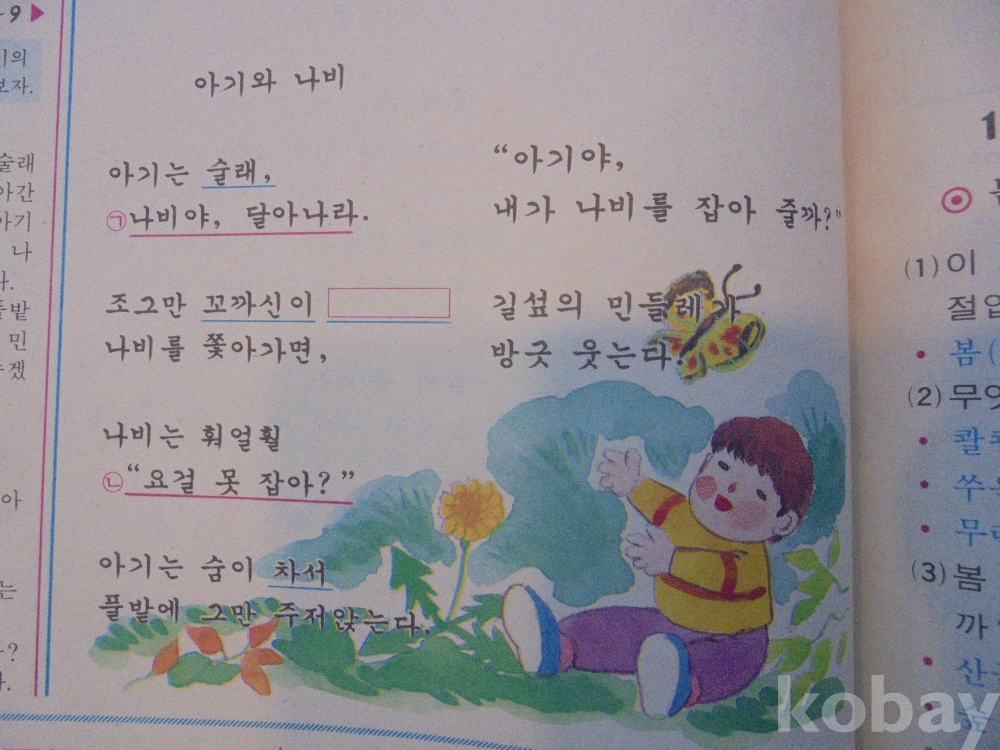 9 ▶
의
보자.
술래
아간
아기
나
풀밭
민
겠
아
는
아기와 나비
아기는 술래,
㉠나비야, 달아나라.
조그만 꼬까신이
나비를 쫓아가면,
나비는 훠얼훨
㉡“요걸 못 잡아?”
아기는 숨이 차서
풀밭에 그만 주저앉는다.
“아기야,
내가 나비를 잡아 줄까?”
길섶의 민들레가
방긋 웃는다.
1
(1) 이
절
봄(
(2) 무엇
콸
쑤
무
(3) 봄
까
산
kobay